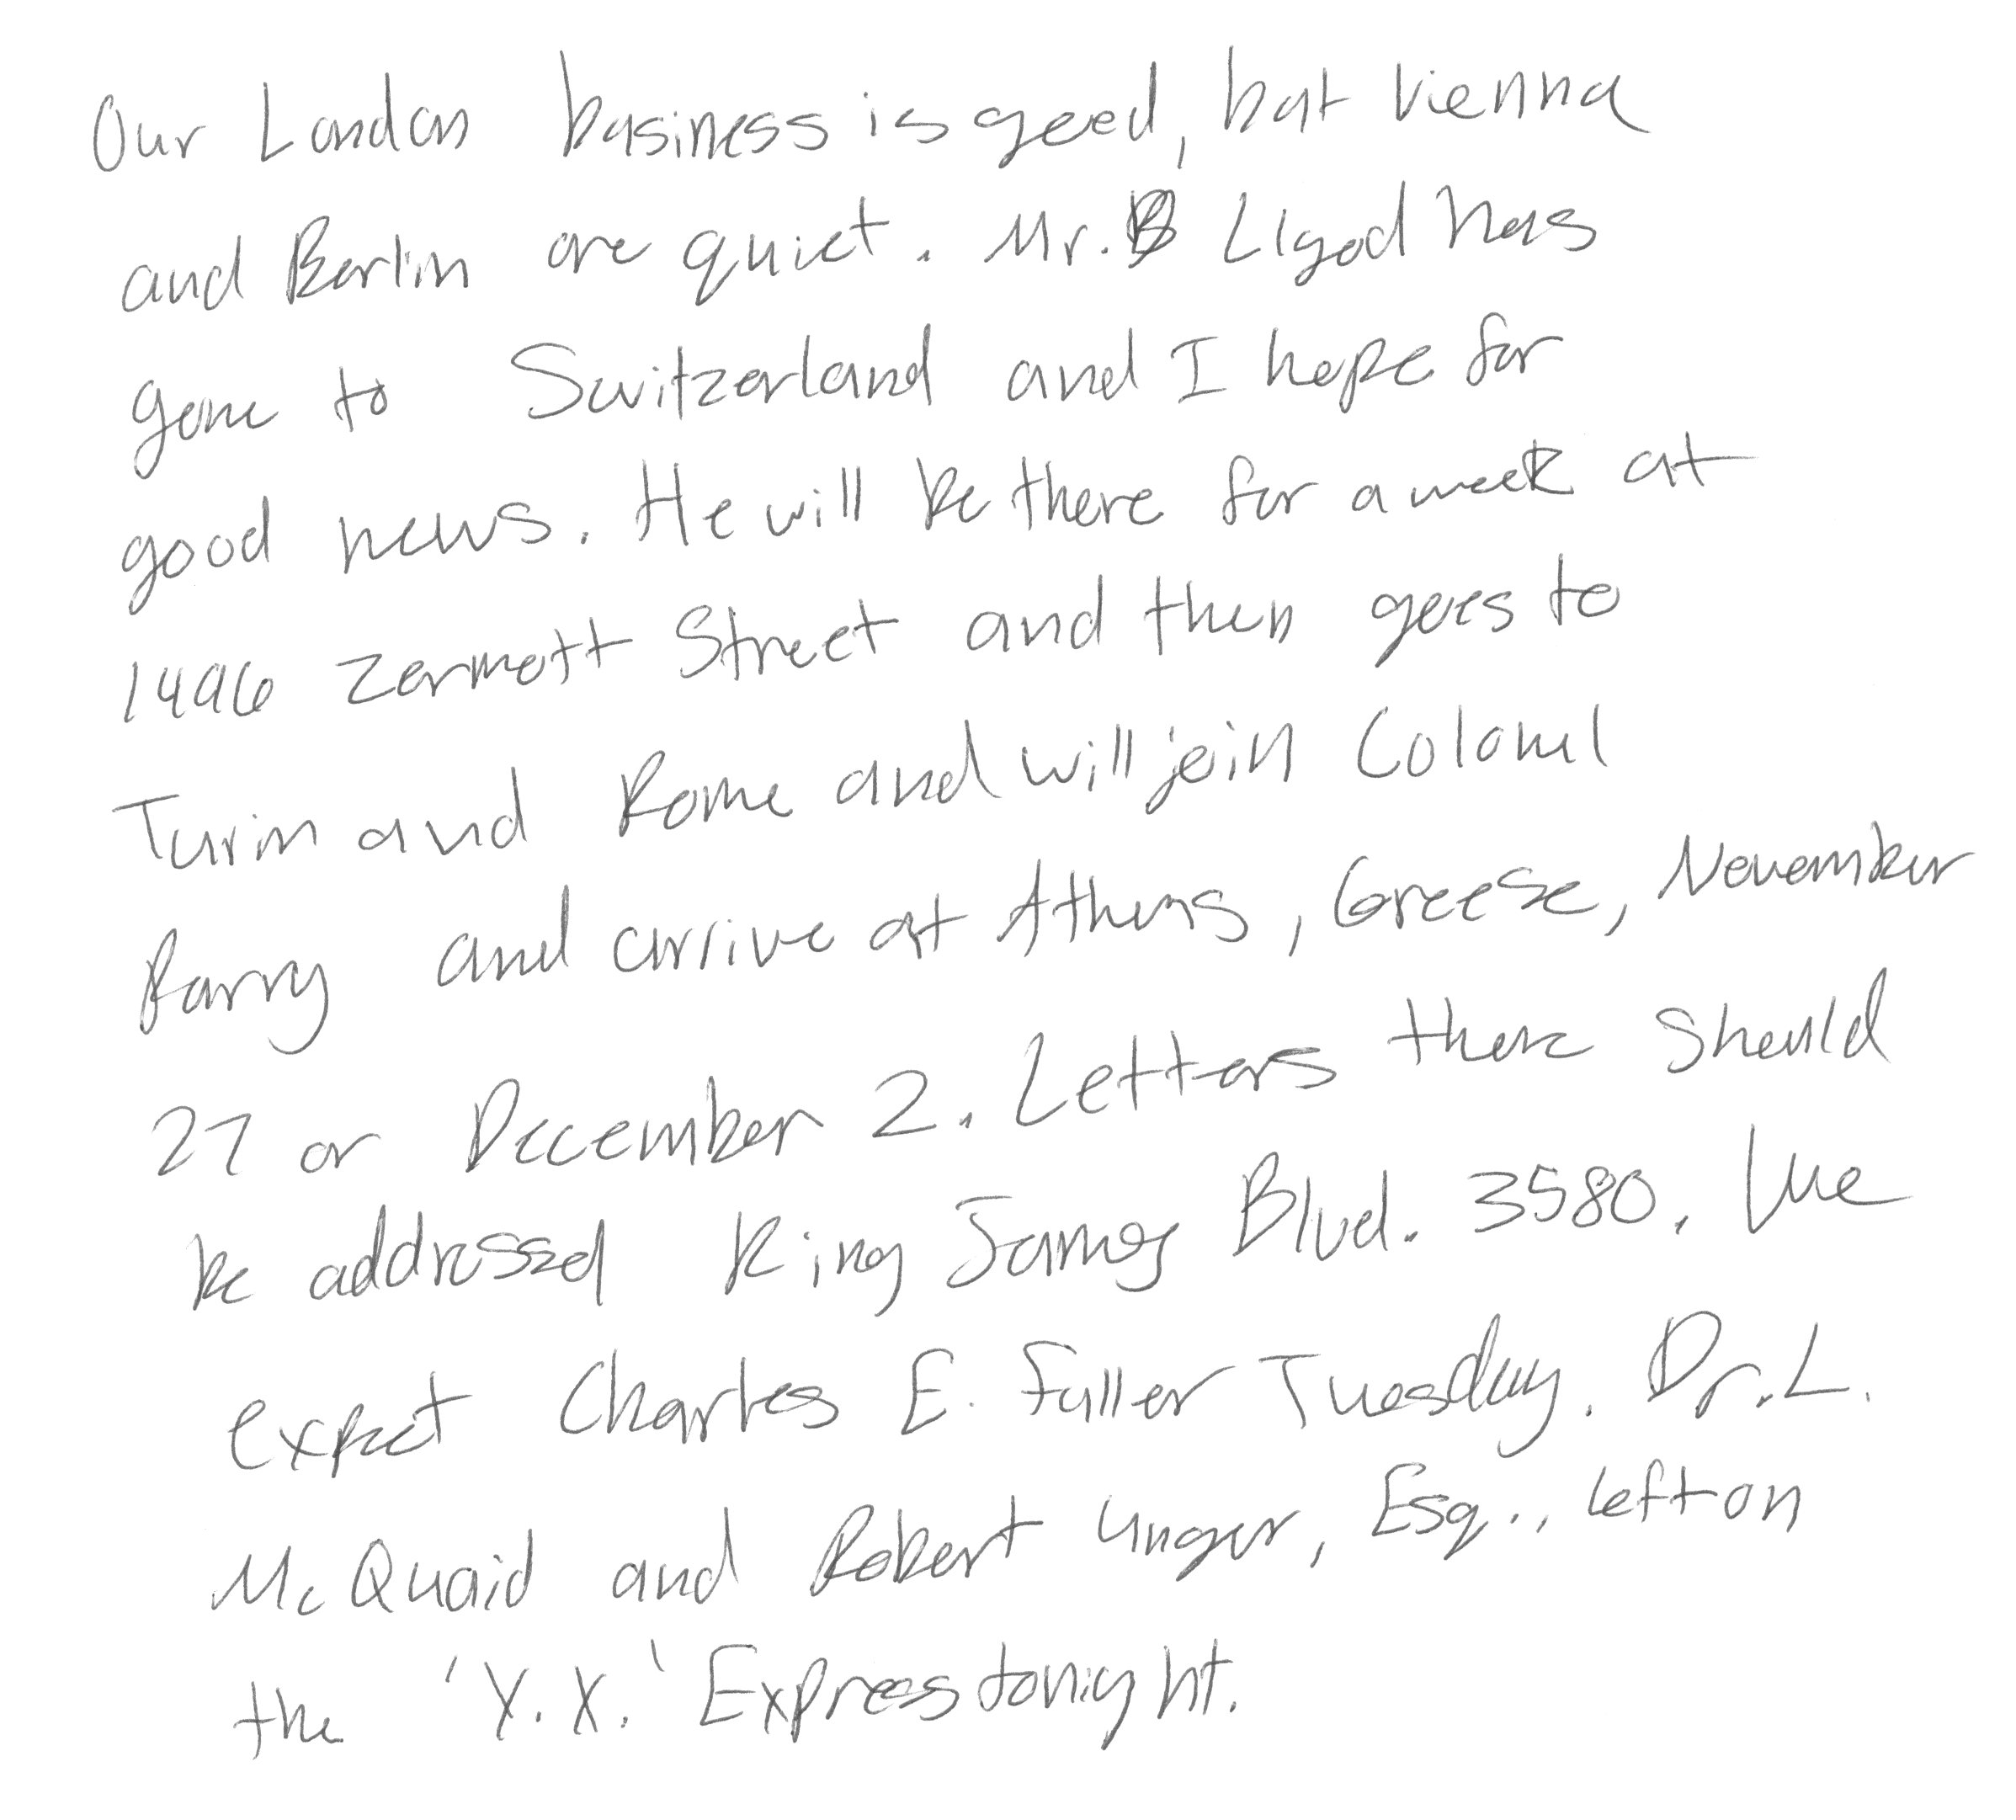 Our London business is good, but Vienna
and Berlin are quiet. Mr. Ligod has
gone to Switzerland and I hope for
good news. He will be there for a week at
1496 Zermott Street and then goes to
Turin and Rome and will join Colonel
Parry and arrive at Athens, Greese, November
27 or December 2. Letters there should
be addressed King James Blvd. 3580. We
expect Charles E. Fuller Tuesday. Dr. L.
McQuaid and Robert Unger, Esq., left on
the 'Y.X.' Express tonight.